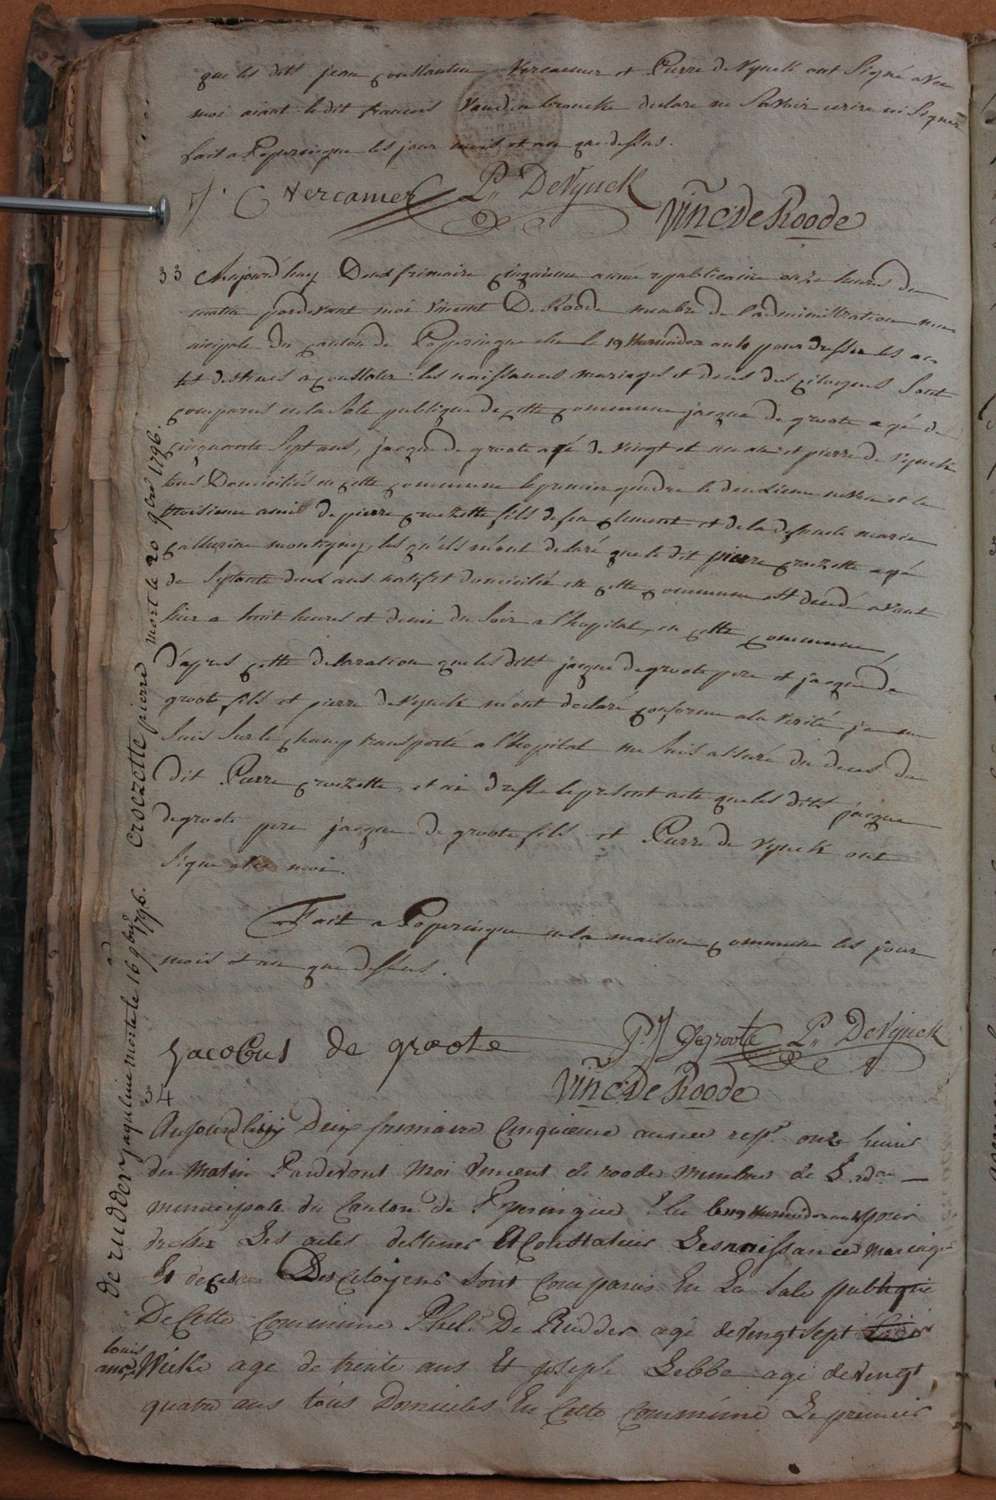 que les dits jean constantin Vercamer et Pierre de Vynck ont Signé avec
moi aiant le dit francois Vand declare ne Savoir ecrire ni Signer
fait a Poperingue les jour mois et an que dessus.
C Vercamer P. DeVynck
Vinc: De Roode
33 Aujourd'huy Deux frimaire cinquieme année republicaine onze heures du
matin pardevant moi Vincent De Roode membre de l'administration mu
nicipale du canton de Poperingue elu le 19 thermidor an 4 pour dresser les ac
tes destinés a constater les naissances mariages et deces des citoyens Sont
comparus en la Sale publique de cette commune jacque de groote agé de
cinquante Sept ans, jacque de groote agé de vingt et un ans et pierre de Vynck
tous Domiciliés en cette commune le premier gendre le deuxieme neveu et le
troisieme ami de pierre croezette fils de feu clement et de la defunte marie
catherine montigny, les qu'els m'ont declaré que le dit pierre croezette agé
de Septante deux ans natif et domicilié en cette commune est decedé avant
hier a huit heures et demie du Soir a l'hopital en cette commune,
d'apres cette declaration que les dits jacque degroote pere et jacque de
groote fils et pierre deVynck m'ont declare conforme a la verité je me
Suis Sur le champ transporté a l'hopital me Suis assuré du deces du
dit Pierre croezette, et ai dressé le present acte que les dits jacque
degroote pere jacque de groote fils et Pierre de Vynck ont
Signé avec moi.
Fait a Poperingue en la maison commune les jour
mois et an que dessus.
Jacobus de groote P J Degroote P. DeVynck
Vinc: De Roode
34
Aujourd'huy Deux frimaire Cinquieme année rep. onze heures
du Matin Pardevant Moi Vincent de roode Membre de
municipale du Canton de Poperingue Elu le 19 thermidor an 4 pour
dresser Les actes destinés Et Constater Les naissances mariages
Et deces Des Citoyens Sont Comparus En La Sale publique
De Cette Commune Phel. De Rudder agé de vingt sept
louis
ans, Wicke age de trente ans Et joseph Lebbe agé de vingt
quatre ans tous Domiciles En Cette Commune Le premier
croezette pierre mort le 20 9bre 1796.
de rudder jaquline morte le 16 9bre 1796.